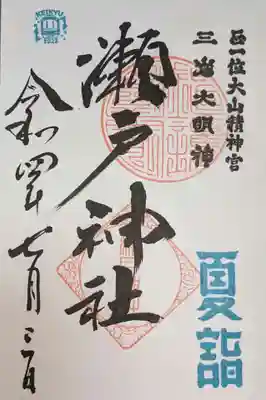 正一位大山積神宮
三島大明神
夏詣
瀬戸神社
令和四年七月三一日
KEIKYU